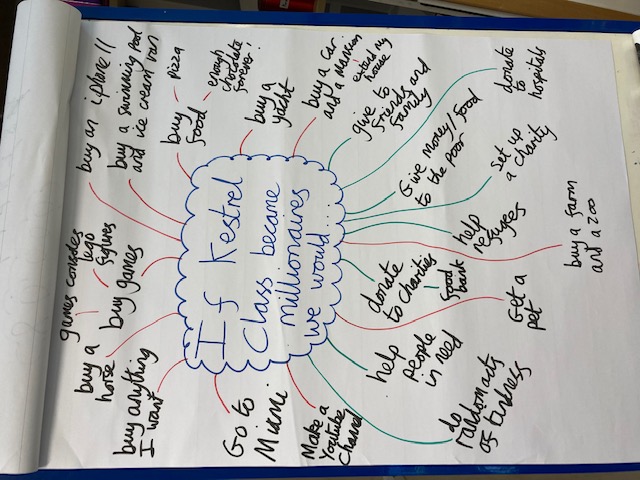 If Kestrel
Class became
millionaires
we would...
buy an iphone 11
buy a swimming pool
and ice cream van
buy
food
pizza
enough
chocolate
forever!
buy a
yacht
buy a car
and a mansion
extend my
house
give to
friends and
family
donate
to
hospitals
Give money/food
to the poor
set up
a charity
help
refugees
buy a farm
and a zoo
donate
to charities
food
bank
Get a
pet
help
people
in need
do
random acts
of kindness
Make a
Youtube
Channel
Go to
Miami
buy anything
I want
buy a
horse
buy games
games consoles
lego
figures